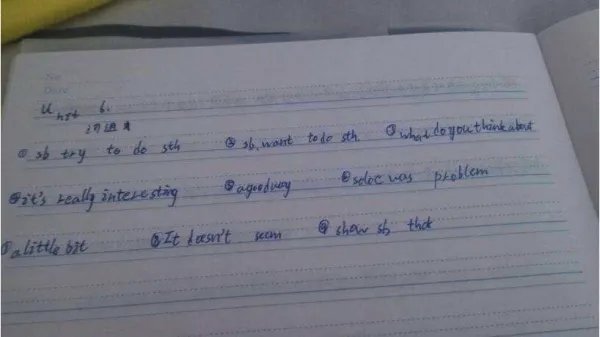 No.
Date
Unit 6.
① sb try to do sth ② sb. want to do sth ③ what do you think about
④ it's really interesting ⑤ a good way ⑥ was problem
⑦ a little bit ⑧ It doesn't seem ⑨ show sb that